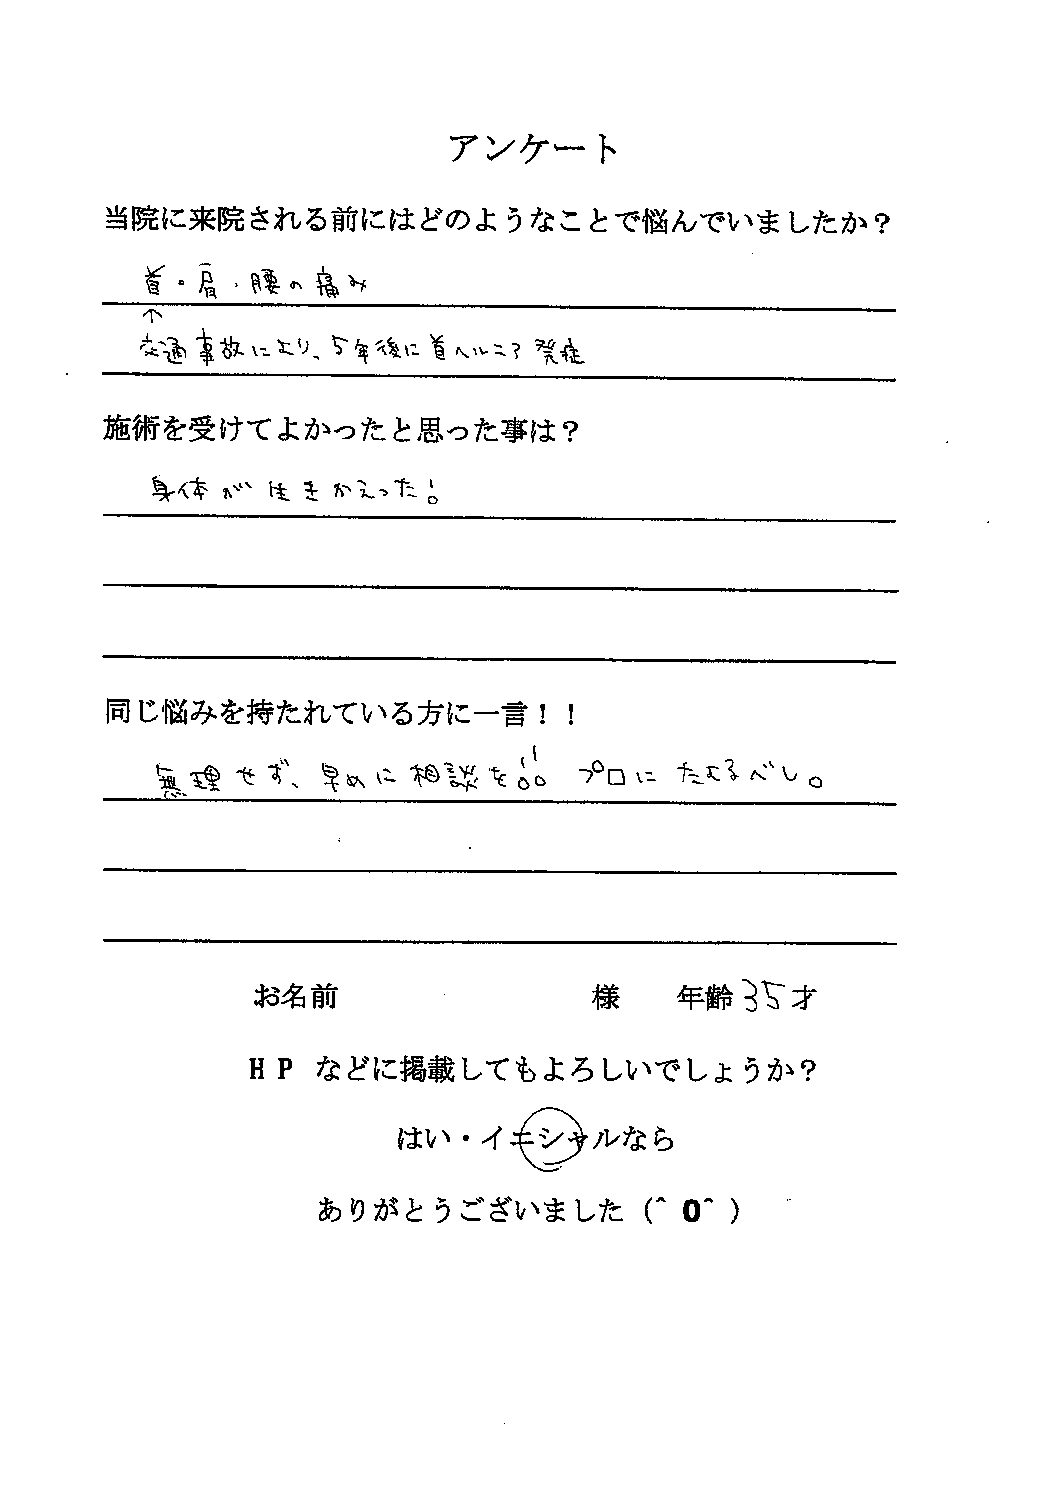 アンケート
当院に来院される前にはどのようなことで悩んでいましたか？
首・肩・腰の痛み
↑
交通事故により、5年後に首ヘルニア発症
施術を受けてよかったと思った事は？
身体が生きかえった!
同じ悩みを持たれている方に一言！！
無理せず、早めに相談を!! プロにたむるべし。
お名前 様 年齢 35才
HP などに掲載してもよろしいでしょうか？
はい・イニシャルなら
ありがとうございました（＾0＾）